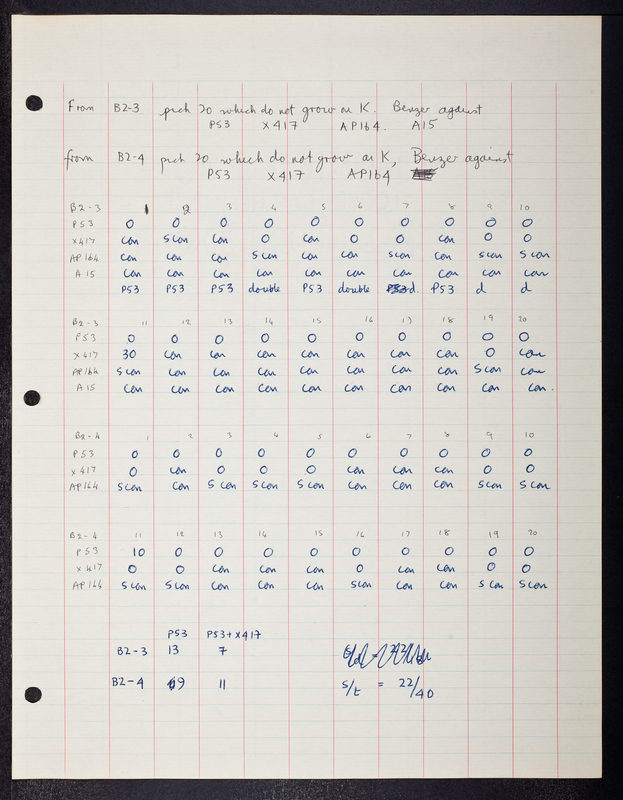 From B2-3 pick 20 which do not grow on K. Benzer against
P53 X417 AP164. A15
from B2-4 pick 20 which do not grow on K, Benzer against
P53 X417 AP164
B2-3 1 2 3 4 5 6 7 8 9 10
P53 0 0 0 0 0 0 0 0 0 0
X417 con s con con 0 con 0 0 con 0 0
AP164 con con con s con con con s con con s con s con
A15 con con con con con con con con con con
P53 P53 P53 double P53 double d. P53 d d
B2-3 11 12 13 14 15 16 17 18 19 20
P53 0 0 0 0 0 0 0 0 0 0
X417 30 con con con con con con con 0 con
AP164 s con con con con con con con con s con con
A15 con con con con con con con con con con.
B2-4 1 2 3 4 5 6 7 8 9 10
P53 0 0 0 0 0 0 0 0 0 0
X417 0 con 0 0 0 con con con 0 0
AP164 s con con s con s con s con con con con s con s con
B2-4 11 12 13 14 15 16 17 18 19 20
P53 10 0 0 0 0 0 0 0 0 0
X417 0 0 con con con 0 con con 0 0
AP164 s con s con con con con s con con con s con s con
P53 P53+X417
B2-3 13 7
B2-4 9 11
s/t = 22/40